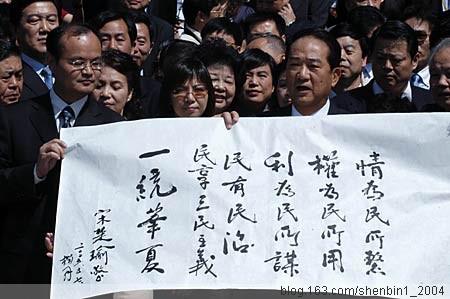 情為民所繫
權為民所用
利為民所謀
民有民治
民享三民主義
一統華夏
宋楚瑜敬
二〇〇五五七
blog.163.com/shenbin1_2004